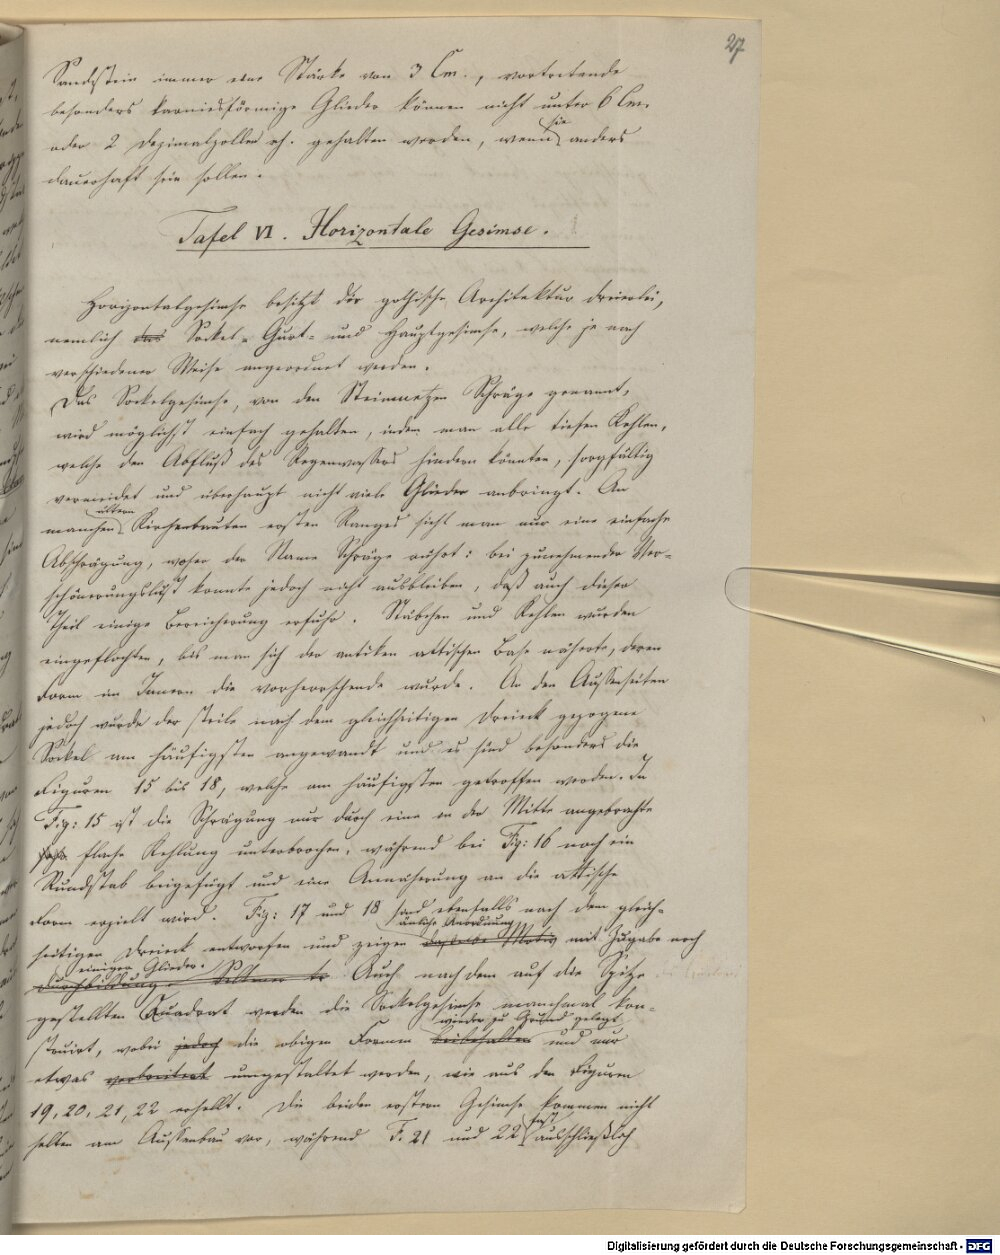 27
Sandstein immer eine Stärke von 3 Cm., vortretende
besonders karniesförmige Glieder können nicht unter 6 Cm.
oder 2 Dezimalzollen rh. gehalten werden, wenn sie anders
dauerhaft sein sollen.
Tafel VI. Horizontale Gesimse.
Horizontalgesimse besitzt die gothische Architektur dreierlei,
nemlich das Sockel- Gurt- und Hauptgesimse, welche je nach
verschiedener Weise angeordnet werden.
Das Sockelgesimse, von den Steinmetzen Schräge genannt,
wird möglichst einfach gehalten, indem man alle tiefen Kehlen,
welche den Abfluß des Regenwassers hindern könnten, sorgfältig
vermeidet und überhaupt nicht viele Glieder anbringt. An
ältern
manchen Kirchenbauten ersten Ranges sieht man nur eine einfache
Abschrägung, woher der Name Schräge rührt: bei zunehmender Ver-
schönerungslust konnte jedoch nicht ausbleiben, daß auch dieser
Theil einige Bereicherung erfuhr. Stäbchen und Kehlen wurden
eingeflochten, bis man sich der antiken attischen Base näherte, deren
Form im Innern die vorherrschende wurde. An den Aussenseiten
jedoch wurde der steile nach dem gleichseitigen Dreieck gezogene
Sockel am häufigsten angewandt und es sind besonders die
Figuren 15 bis 18, welche am häufigsten getroffen werden. In
Fig: 15 ist die Schrägung nur durch eine in der Mitte angebrachte
flache Kehlung unterbrochen, während bei Fig: 16 noch ein
Rundstab beigefügt und eine Annäherung an die attische
Form erzielt wird. Fig: 17 und 18 sind ebenfalls nach dem gleich-
änliche Anordnung
seitigen Dreieck entworfen und zeigen dasselbe Motiv mit Zugabe noch
einiger Glieder.
durchbildung. Seltener Auch nach dem auf die Spitze
gestellten Quadrat werden die Sockelgesimse manchmal kon-
wieder zu Grund gelegt
struirt, wobei jedoch die obigen Formen beibehalten und nur
etwas verbreitert umgestaltet werden, wie aus den Figuren
19, 20, 21, 22 erhellt. Die beiden erstern Gesimse kommen nicht
selten am Aussenbau vor, während F. 21 und 22 fast ausschließlich
Digitalisierung gefördert durch die Deutsche Forschungsgemeinschaft - DFG